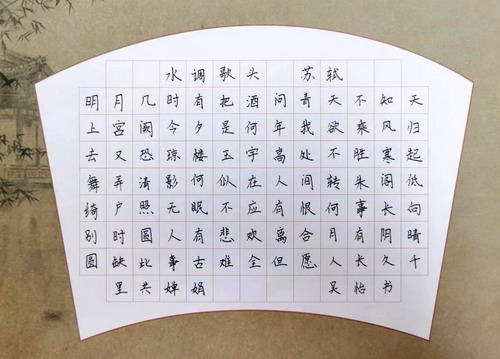 水调歌头 苏轼
明月几时有把酒问青天不知天
上宫阙今夕是何年我欲乘风归
去又恐琼楼玉宇高处不胜寒起
舞弄清影何似在人间转朱阁低
绮户照无眠不应有恨何事长向
别时圆人有悲欢离合月有阴晴
圆缺此事古难全但愿人长久千
里共婵娟 吴怡书